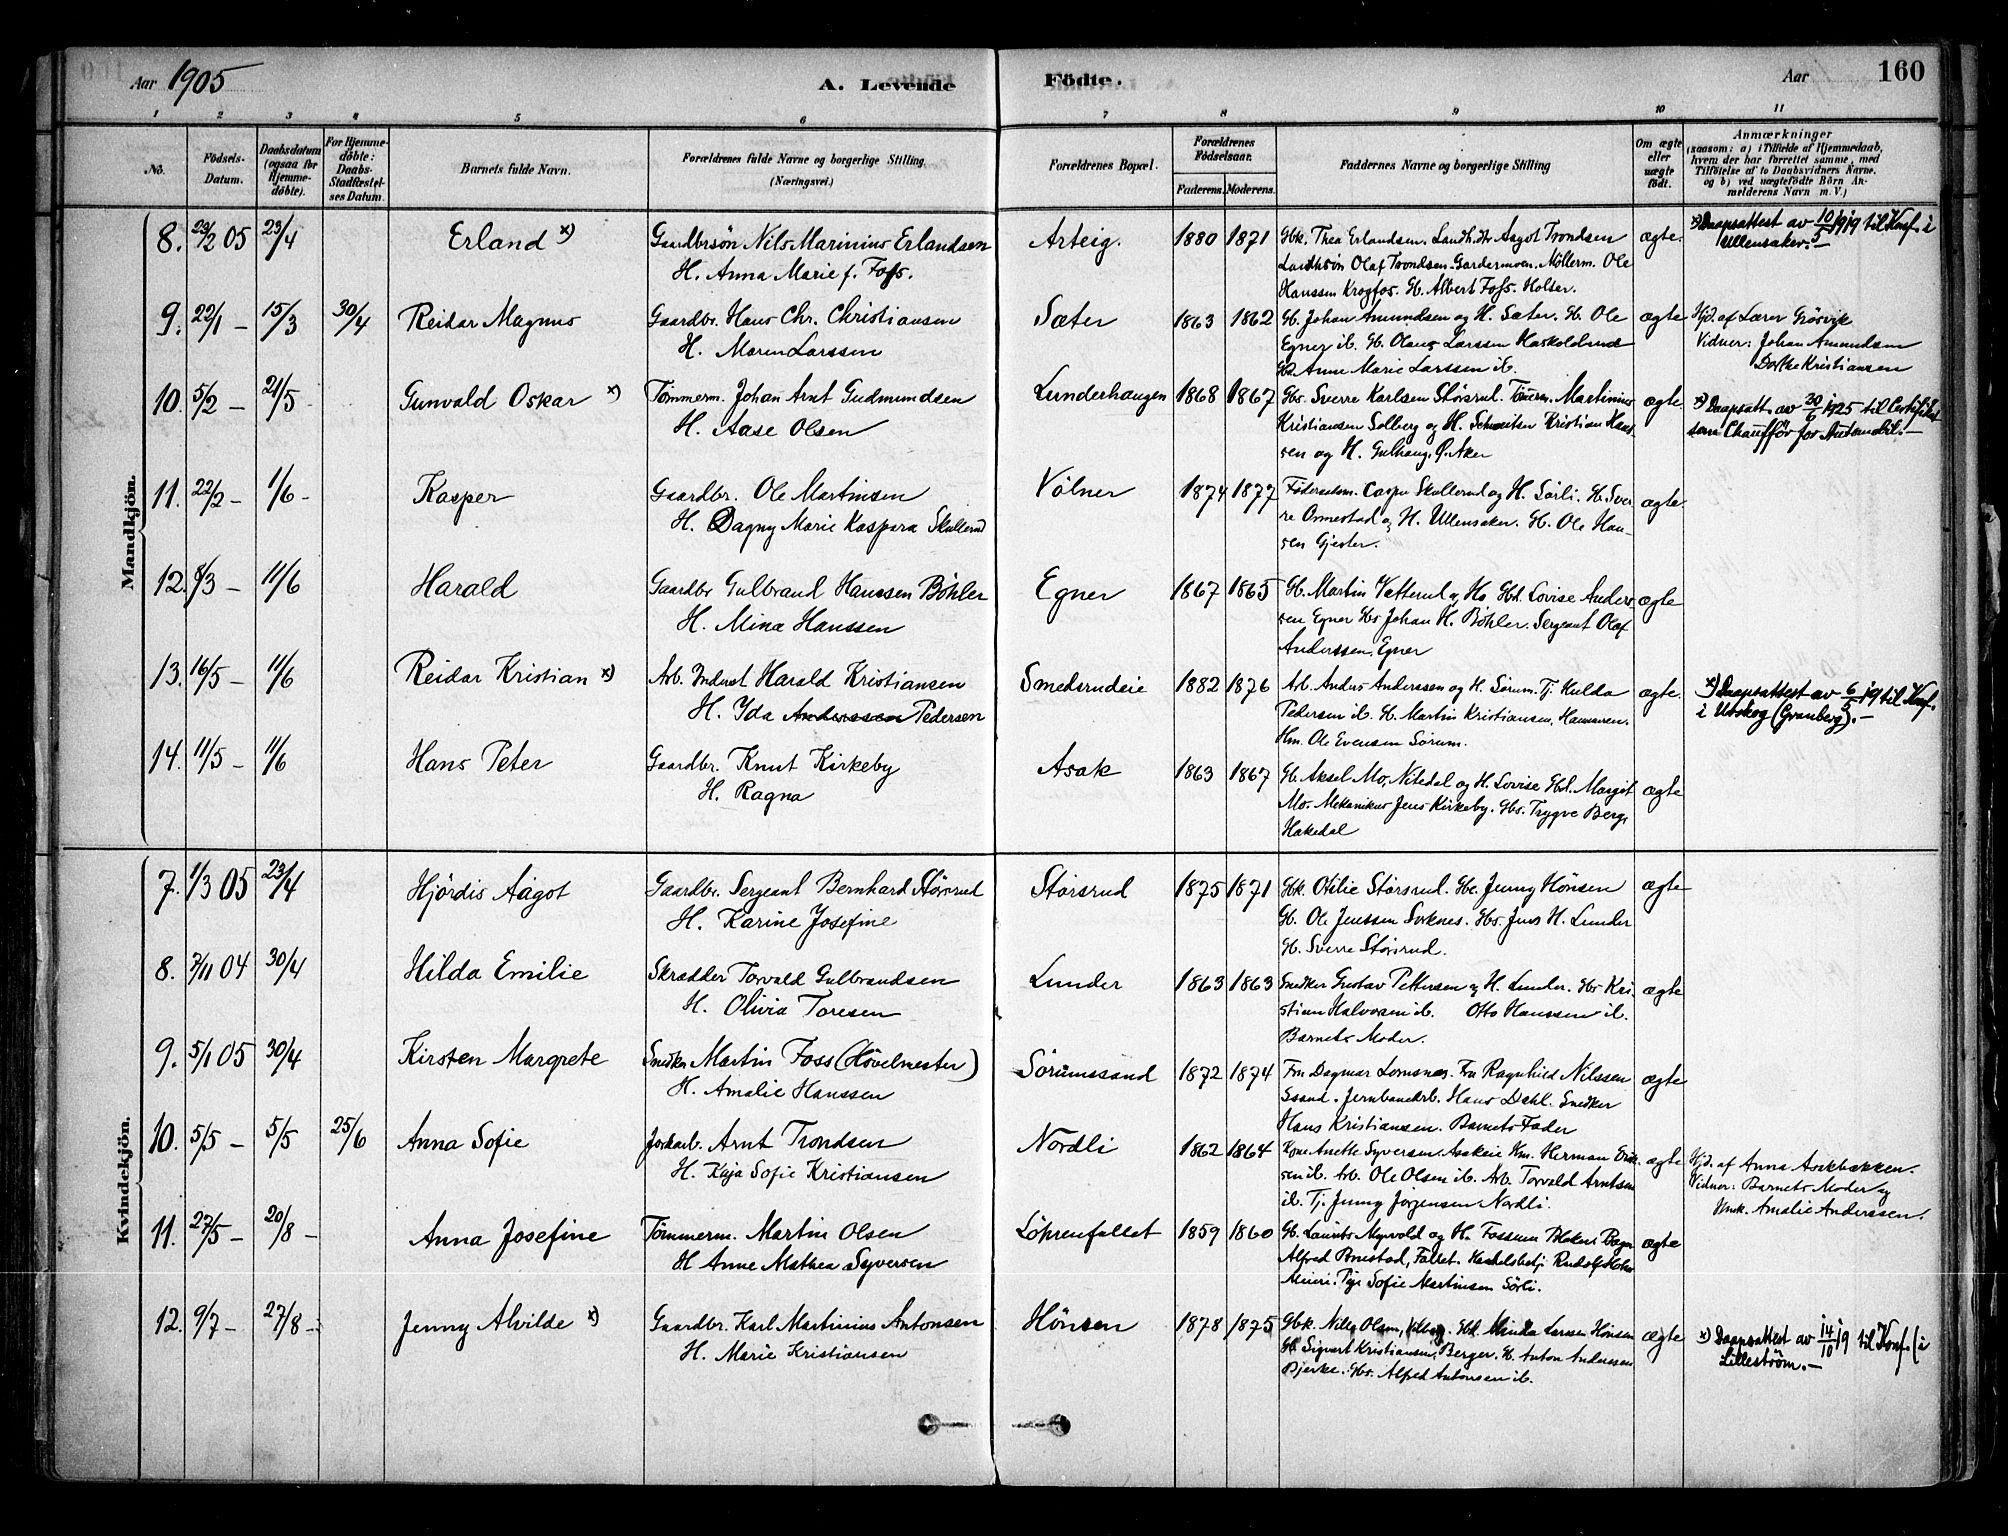 Aar 1905
A. Levende
Födte.
Aar
160
1 2 3 4 5 6 7 8 9 10 11
No.
Födsels-Datum.
Daabsdatum (ogsaa for Hjemme-döbte).
For Hjemme-döbte: Daabs-Stadfæstel-ses Datum.
Barnets fulde Navn.
Forældrenes fulde Navne og borgerlige Stilling. (Næringsvei.)
Forældrenes Bopæl.
Forældrenes Födselsaar.
Faderens. Moderens.
Faddernes Navne og borgerlige Stilling
Om ægte eller uægte födt.
Anmærkninger
(saasom: a) i Tilfælde af Hjemmedaab, hvem der har forrettet samme, med Tilföielse af to Daabsvidners Navne, og b) ved uægtefödte Börn An-melderens Navn m. V.)
Mandkjön.
8. 23/2 05 23/4 Erland x) Gaardbrsön Nils Marinius Erlandsen Arteig. 1880 1871 Gbk. Thea Erlandsen. Landh. dtr Aagot Trondsen ægte. x) Daapsattest av 10/5 1919 til Konf. i
H. Anna Marie f. Foss. Landhsön Olaf Trondsen. Gardermoen. Möllerm. Ole Ullensaker.-
Hanssen Krogfos. G. Albert Foss. Holter.
9. 22/1 - 15/3 30/4 Reidar Magnus Gaardbr. Hans Chr. Christiansen Sæter 1863 1862 Gb. Johan Amundsen og H. Sæter. G. Ole ægte Hjd. af Lærer Grösvik
H. Maren Larssen Egner ib. Gb. Olaus Larssen Haskoldsrud Vidner: Johan Amundsen
Anne Marie Larssen ib. Dorthe Kristiansen
10. 5/2 - 21/5 Gunvald Oskar x) Tömmerm. Johan Arnt Gudmundsen Lunderhaugen 1868 1867 Gbs. Sverre Karlsen Störsrud. Tömrm. Martinius ægte. x) Daapsatt. av 30/6 1925 til Certifikat
H. Aase Olsen Kristiansen Solberg og H. Kristian Hans- som Chaufför for Automobil.-
sen og H. Gulhaug. Ö. Aker
11. 22/2 - 1/6 - Kasper Gaardbr. Ole Martinsen Völner 1874 1877 Föderaadsm. Casper Skullerud og H. Sörli. G. Sver- ægte.
H. Dagny Marie Kaspara Skullerud re Ormestad og H. Ullensaker. G. Ole Han-
sen Gjester.
12. 8/3 - 11/6 Harald Gaardbr Gulbrand Hanssen Böhler Egner 1867 1865 G. Martin Vetterud og H. Gbd. Lovise Anders- ægte
H. Mina Hanssen sen Egner Gbs Johan H. Böhler. Sergeant Olaf
Anderssen, Egner
13. 16/5 - 11/6 Reidar Kristian x) Arb. Inderst Harald Kristiansen Smedsrudeie 1882 1876 Arb. Anders Anderssen og H. Sörum. Tj. Hulda ægte. x) Daapsattest av 6/5 19 til Konf.
H. Ida Anderssen Pedersen Pedersen ib. G. Martin Kristiansen, i Urskog (Granberg).-
Hm. Ole Evensen Sörum.
14. 11/5 - 11/6 Hans Peter Gaardbr. Knut Kirkeby Asak 1863 1867 Gb. Aksel Mo, Nitedal og H. Lovise Gbd. Margit ægte
H. Ragna Mo. Mekanikus Jens Kirkeby. Gbs. Trygve Berg
Hakedal
Kvindekjön.
7. 1/3 05 23/4 Hjördis Aagot Gaardbr. Sergeant Bernhard Störsrud Störsrud 1875 1871 Gbk. Otilie Störsrud. Gbd. Jenny Hönsen ægte
H. Karine Josefine Gb. Ole Jenssen Sorknes. Gbs. Jens H. Lunder
G. Sverre Störsrud.
8. 7/11 04 30/4 Hilda Emilie Skrædder Torvald Gulbrandsen Lunder 1863 1863 Snedker Gustav Pettersen og H. Lunder. Gbs Kri- ægte
H. Olivia Toresen stian Halvorsen ib. Otto Hanssen ib.
Barnets Moder.
9. 5/1 05 30/4 Kirsten Margrete Snedker Martin Foss (Hövelmester) Sörumssand 1872 1874 Fru Dagmar Lomsnæs. Fru Ragnhild Nilssen ægte
H. Amalie Hanssen Ssand. Jernbanearb. Hans Dahl. Snedker
Hans Kristiansen. Barnets Fader
10. 5/5 - 5/5 25/6 Anna Sofie Jordarb. Arnt Trondsen Nordli 1862 1864 Kone Anette Syversen Asakeie Hm. Herman Erik- ægte Hjd. af Anna Asakbakken.
H. Kaja Sofie Kristiansen sen ib. Arb. Ole Olsen ib. Arb. Torvald Arntsen Vidner: Barnets Moder og
ib. Tj. Jenny Jörgensen Nordli. Amalie Anderssen.
11. 27/5 - 20/8 - Anna Josefine Tömmerm. Martin Olsen Lökrenfallet 1859 1860 Gb. Laurits Myrvold og H. Fossum ægte
H. Anne Mathea Syversen Alfred Fallet. Handelsbetj. Rudolf
Sofie Martinsen Sörli.
12. 9/7 - 27/8 - Jenny Alvilde x) Gaardbr. Karl Martinius Antonsen Hönsen 1878 1875 Gbk. Olsen, Gbd. Minda Larssen Hönsen ægte x) Daapsattest av 14/10 19 til Konf. i
H. Marie Kristiansen Sigvart Kristiansen, Berger. G. Anton Anderssen Lilleström.-
Bjerke. Gbs. Alfred Antonsen ib.